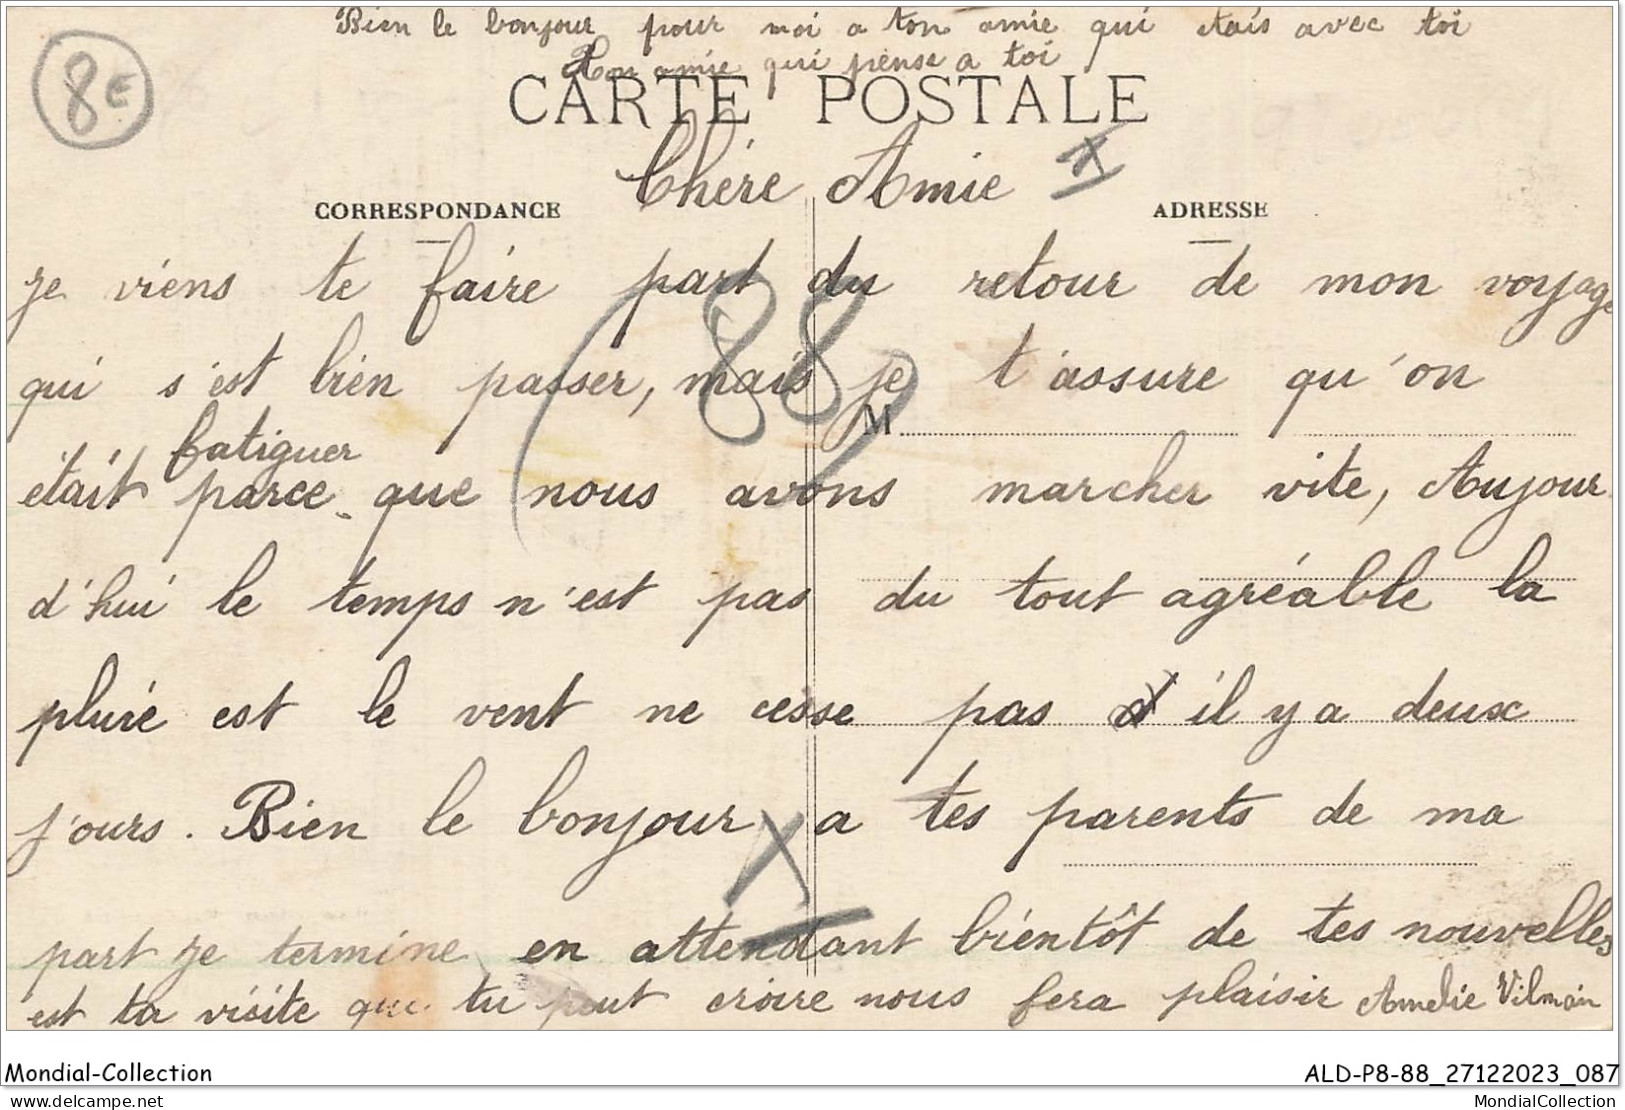 Bien le bonjour pour moi a ton amie qui étais avec toi
Ton amie qui pense a toi
8€
CARTE POSTALE
Chére Amie
CORRESPONDANCE
ADRESSE
je viens te faire part du retour de mon voyage
qui s'est bien passer, mais je t'assure qu'on
(88)
M
fatiguer
était parce que nous avons marcher vite, Aujour
d'hui le temps n'est pas du tout agréable la
pluie est le vent ne cesse pas il y a deux
jours. Bien le bonjour a tes parents de ma
part je termine en attendant bientôt de tes nouvelles
est ta visite que tu peut croire nous fera plaisir Amelie Vilmain
Mondial-Collection
ALD-P8-88_27122023_087
delcampe.net
MondialCollection